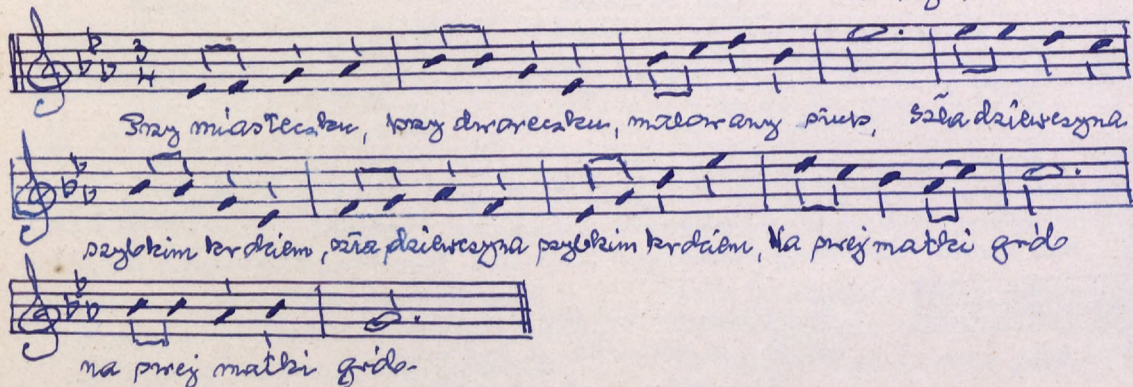 Przy miasteczku, przy dworeczku, malowany słup, Szła dziewczyna
szybkim krokiem, szła dziewczyna szybkim krokiem, Na swej matki grób
na swej matki grób.